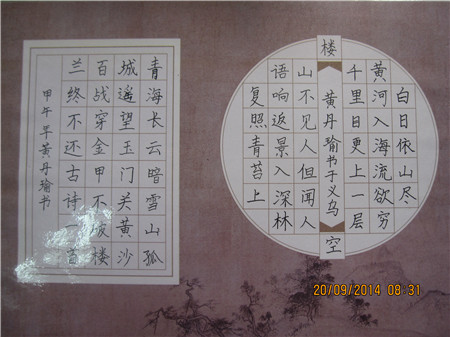 白日依山尽
黄河入海流欲穷
千里目更上一层
楼
黄丹瑜书于义乌
空
山不见人但闻人
语响返景入深林
复照青苔上
青海长云暗雪山孤
城遥望玉门关黄沙
百战穿金甲不破楼
兰终不还古诗一首
甲午年黄丹瑜书
20/09/2014 08:31